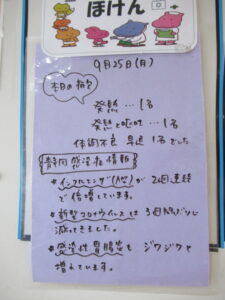 ほけん
9月25日(月)
本日の様子
発熱…1名
発熱と嘔吐…1名
体調不良 早退 1名でした
静岡 感染症情報
★インフルエンザ(A型)が 2週連続
で倍増しています。
★新型コロナウイルスは 3週
減ってきました。
★感染性胃腸炎も ジワジワと
増えています。